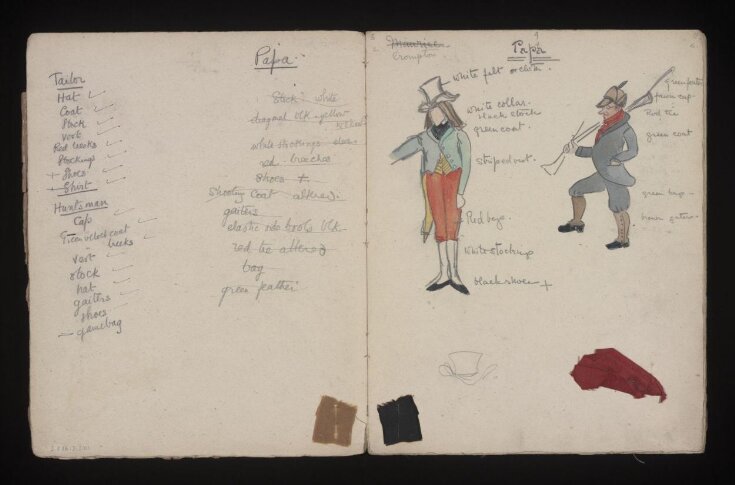 Papa.
Tailor
Hat
Coat
Stock
vest
Red breeks
Stockings
Shoes
Shirt
Huntsman
Cap
Green velvet coat
breeks
vest
stock
hat
gaiters
shoes
gamebag
Stock - white
diagonal blk - yellow
white stockings
red breeches
Shoes
Shooting Coat altered.
gaiters
elastic side boots blk
red tie altered
bag
green feather
Maurice
Crompton
Papa
white felt
white collar.
black stock
green coat.
Striped vest.
Red
white stockings
black shoes +
green feather
cap
Red tie
green coat
green
brown gaiters.